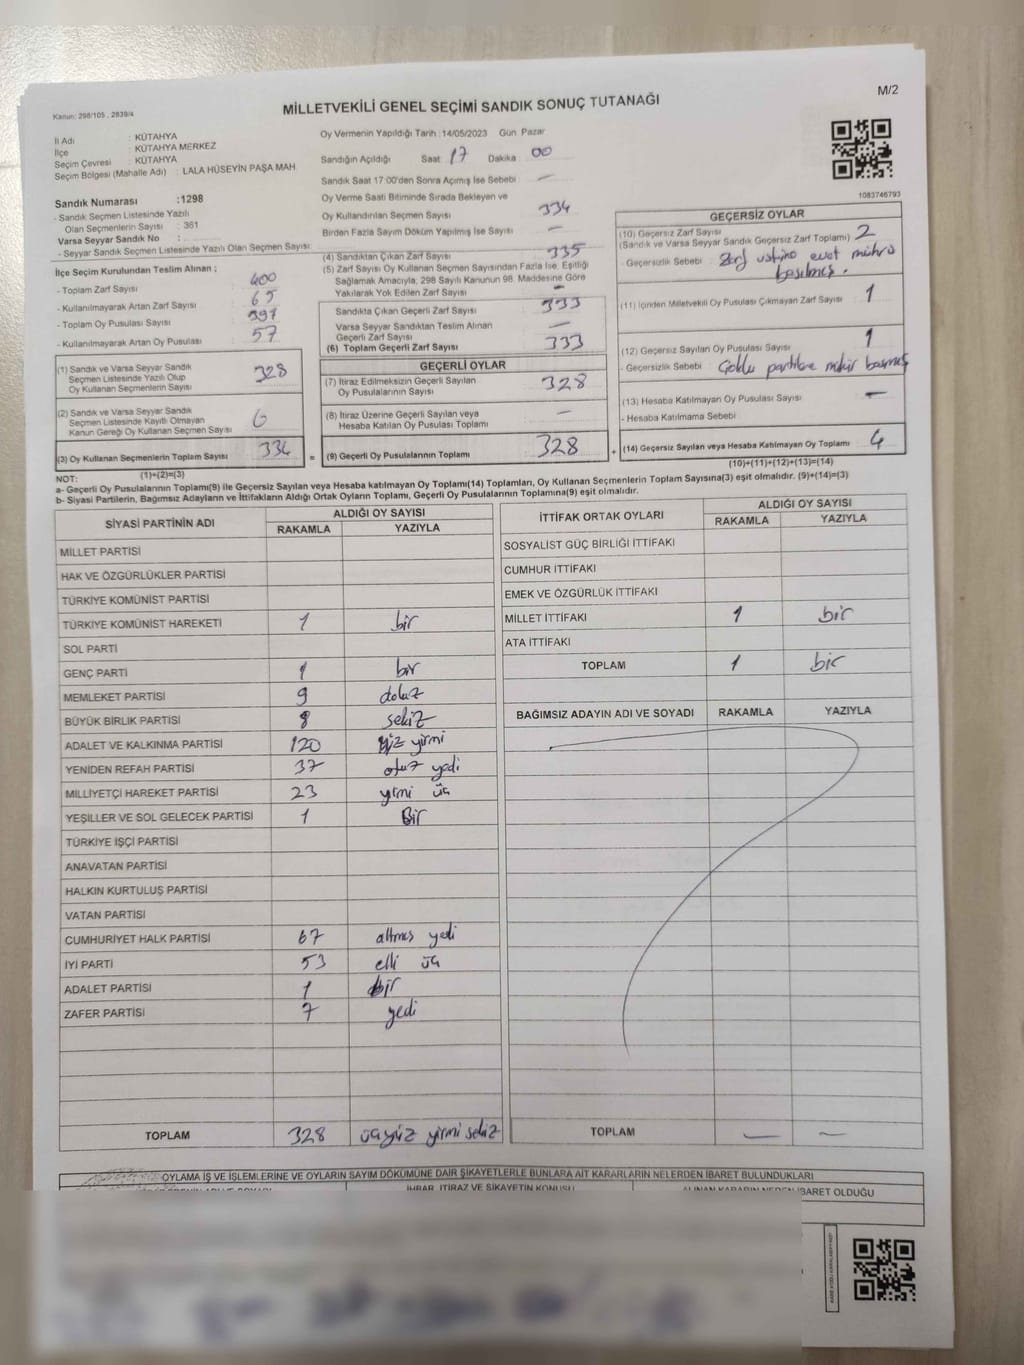 M/2
Kanun: 298/105 , 2839/4
MİLLETVEKİLİ GENEL SEÇİMİ SANDIK SONUÇ TUTANAĞI
İl Adı : KÜTAHYA
İlçe : KÜTAHYA MERKEZ
Seçim Çevresi : KÜTAHYA
Seçim Bölgesi (Mahalle Adı) : LALA HÜSEYİN PAŞA MAH.
Sandık Numarası :1298
- Sandık Seçmen Listesinde Yazılı
Olan Seçmenlerin Sayısı : 361
Varsa Seyyar Sandık No :
- Seyyar Sandık Seçmen Listesinde Yazılı Olan Seçmen Sayısı:
İlçe Seçim Kurulundan Teslim Alınan ;
- Toplam Zarf Sayısı : 400
- Kullanılmayarak Artan Zarf Sayısı : 65
- Toplam Oy Pusulası Sayısı : 391
- Kullanılmayarak Artan Oy Pusulası : 57
(1) Sandık ve Varsa Seyyar Sandık
Seçmen Listesinde Yazılı Olup
Oy Kullanan Seçmenlerin Sayısı 328
(2) Sandık ve Varsa Seyyar Sandık
Seçmen Listesinde Kayıtlı Olmayan
Kanun Gereği Oy Kullanan Seçmen Sayısı 6
(3) Oy Kullanan Seçmenlerin Toplam Sayısı 334
(1)+(2)=(3)
Oy Vermenin Yapıldığı Tarih :14/05/2023 Gün Pazar
Sandığın Açıldığı Saat 17 Dakika 00
Sandık Saat 17:00'den Sonra Açılmış İse Sebebi —
Oy Verme Saati Bitiminde Sırada Bekleyen ve
Oy Kullandırılan Seçmen Sayısı 334
Birden Fazla Sayım Döküm Yapılmış İse Sayısı —
(4) Sandıktan Çıkan Zarf Sayısı 335
(5) Zarf Sayısı Oy Kullanan Seçmen Sayısından Fazla İse, Eşitliği
Sağlamak Amacıyla, 298 Sayılı Kanunun 98. Maddesine Göre
Yakılarak Yok Edilen Zarf Sayısı —
Sandıkta Çıkan Geçerli Zarf Sayısı 333
Varsa Seyyar Sandıktan Teslim Alınan
Geçerli Zarf Sayısı —
(6) Toplam Geçerli Zarf Sayısı 333
GEÇERLİ OYLAR
(7) İtiraz Edilmeksizin Geçerli Sayılan
Oy Pusulalarının Sayısı 328
(8) İtiraz Üzerine Geçerli Sayılan veya
Hesaba Katılan Oy Pusulası Toplamı —
= (9) Geçerli Oy Pusulalarının Toplamı 328 +
1083746793
GEÇERSİZ OYLAR
(10) Geçersiz Zarf Sayısı 2
(Sandık ve Varsa Seyyar Sandık Geçersiz Zarf Toplamı)
- Geçersizlik Sebebi : Zarf üstüne evet mührü
basılmış.
(11) İçinden Milletvekili Oy Pusulası Çıkmayan Zarf Sayısı 1
(12) Geçersiz Sayılan Oy Pusulası Sayısı 1
- Geçersizlik Sebebi : Çoklu partilere mühür basmış
(13) Hesaba Katılmayan Oy Pusulası Sayısı —
- Hesaba Katılmama Sebebi
(14) Geçersiz Sayılan veya Hesaba Katılmayan Oy Toplamı 4
(10)+(11)+(12)+(13)=(14)
NOT:
a- Geçerli Oy Pusulalarının Toplamı(9) ile Geçersiz Sayılan veya Hesaba katılmayan Oy Toplamı(14) Toplamları, Oy Kullanan Seçmenlerin Toplam Sayısına(3) eşit olmalıdır. (9)+(14)=(3)
b- Siyasi Partilerin, Bağımsız Adayların ve İttifakların Aldığı Ortak Oyların Toplamı, Geçerli Oy Pusulalarının Toplamına(9) eşit olmalıdır.
SİYASİ PARTİNİN ADI ALDIĞI OY SAYISI
RAKAMLA YAZIYLA
MİLLET PARTİSİ
HAK VE ÖZGÜRLÜKLER PARTİSİ
TÜRKİYE KOMÜNİST PARTİSİ
TÜRKİYE KOMÜNİST HAREKETİ 1 bir
SOL PARTİ
GENÇ PARTİ 1 bir
MEMLEKET PARTİSİ 9 dokuz
BÜYÜK BİRLİK PARTİSİ 8 sekiz
ADALET VE KALKINMA PARTİSİ 120 yüz yirmi
YENİDEN REFAH PARTİSİ 37 otuz yedi
MİLLİYETÇİ HAREKET PARTİSİ 23 yirmi üç
YEŞİLLER VE SOL GELECEK PARTİSİ 1 Bir
TÜRKİYE İŞÇİ PARTİSİ
ANAVATAN PARTİSİ
HALKIN KURTULUŞ PARTİSİ
VATAN PARTİSİ
CUMHURİYET HALK PARTİSİ 67 altmış yedi
İYİ PARTİ 53 elli üç
ADALET PARTİSİ 1 bir
ZAFER PARTİSİ 7 yedi
TOPLAM 328 üçyüz yirmi sekiz
İTTİFAK ORTAK OYLARI ALDIĞI OY SAYISI
RAKAMLA YAZIYLA
SOSYALİST GÜÇ BİRLİĞİ İTTİFAKI
CUMHUR İTTİFAKI
EMEK VE ÖZGÜRLÜK İTTİFAKI
MİLLET İTTİFAKI 1 bir
ATA İTTİFAKI
TOPLAM 1 bir
BAĞIMSIZ ADAYIN ADI VE SOYADI RAKAMLA YAZIYLA
TOPLAM — —
OYLAMA İŞ VE İŞLEMLERİNE VE OYLARIN SAYIM DÖKÜMÜNE DAİR ŞİKAYETLERLE BUNLARA AİT KARARLARIN NELERDEN İBARET BULUNDUKLARI
İHBAR, İTİRAZ VE ŞİKAYETİN KONUSU ALINAN KARARIN NEDEN İBARET OLDUĞU